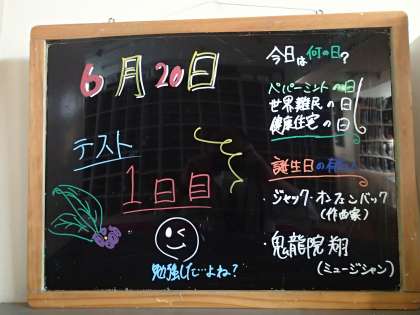 6月20日
テスト
1日目
勉強して…よね?
今日は何の日?
ペパーミントの日
世界難民の日
健康住宅の日
誕生日の有名人
・ジャック・オッフェンバック
(作曲家)
・鬼龍院翔
(ミュージシャン)